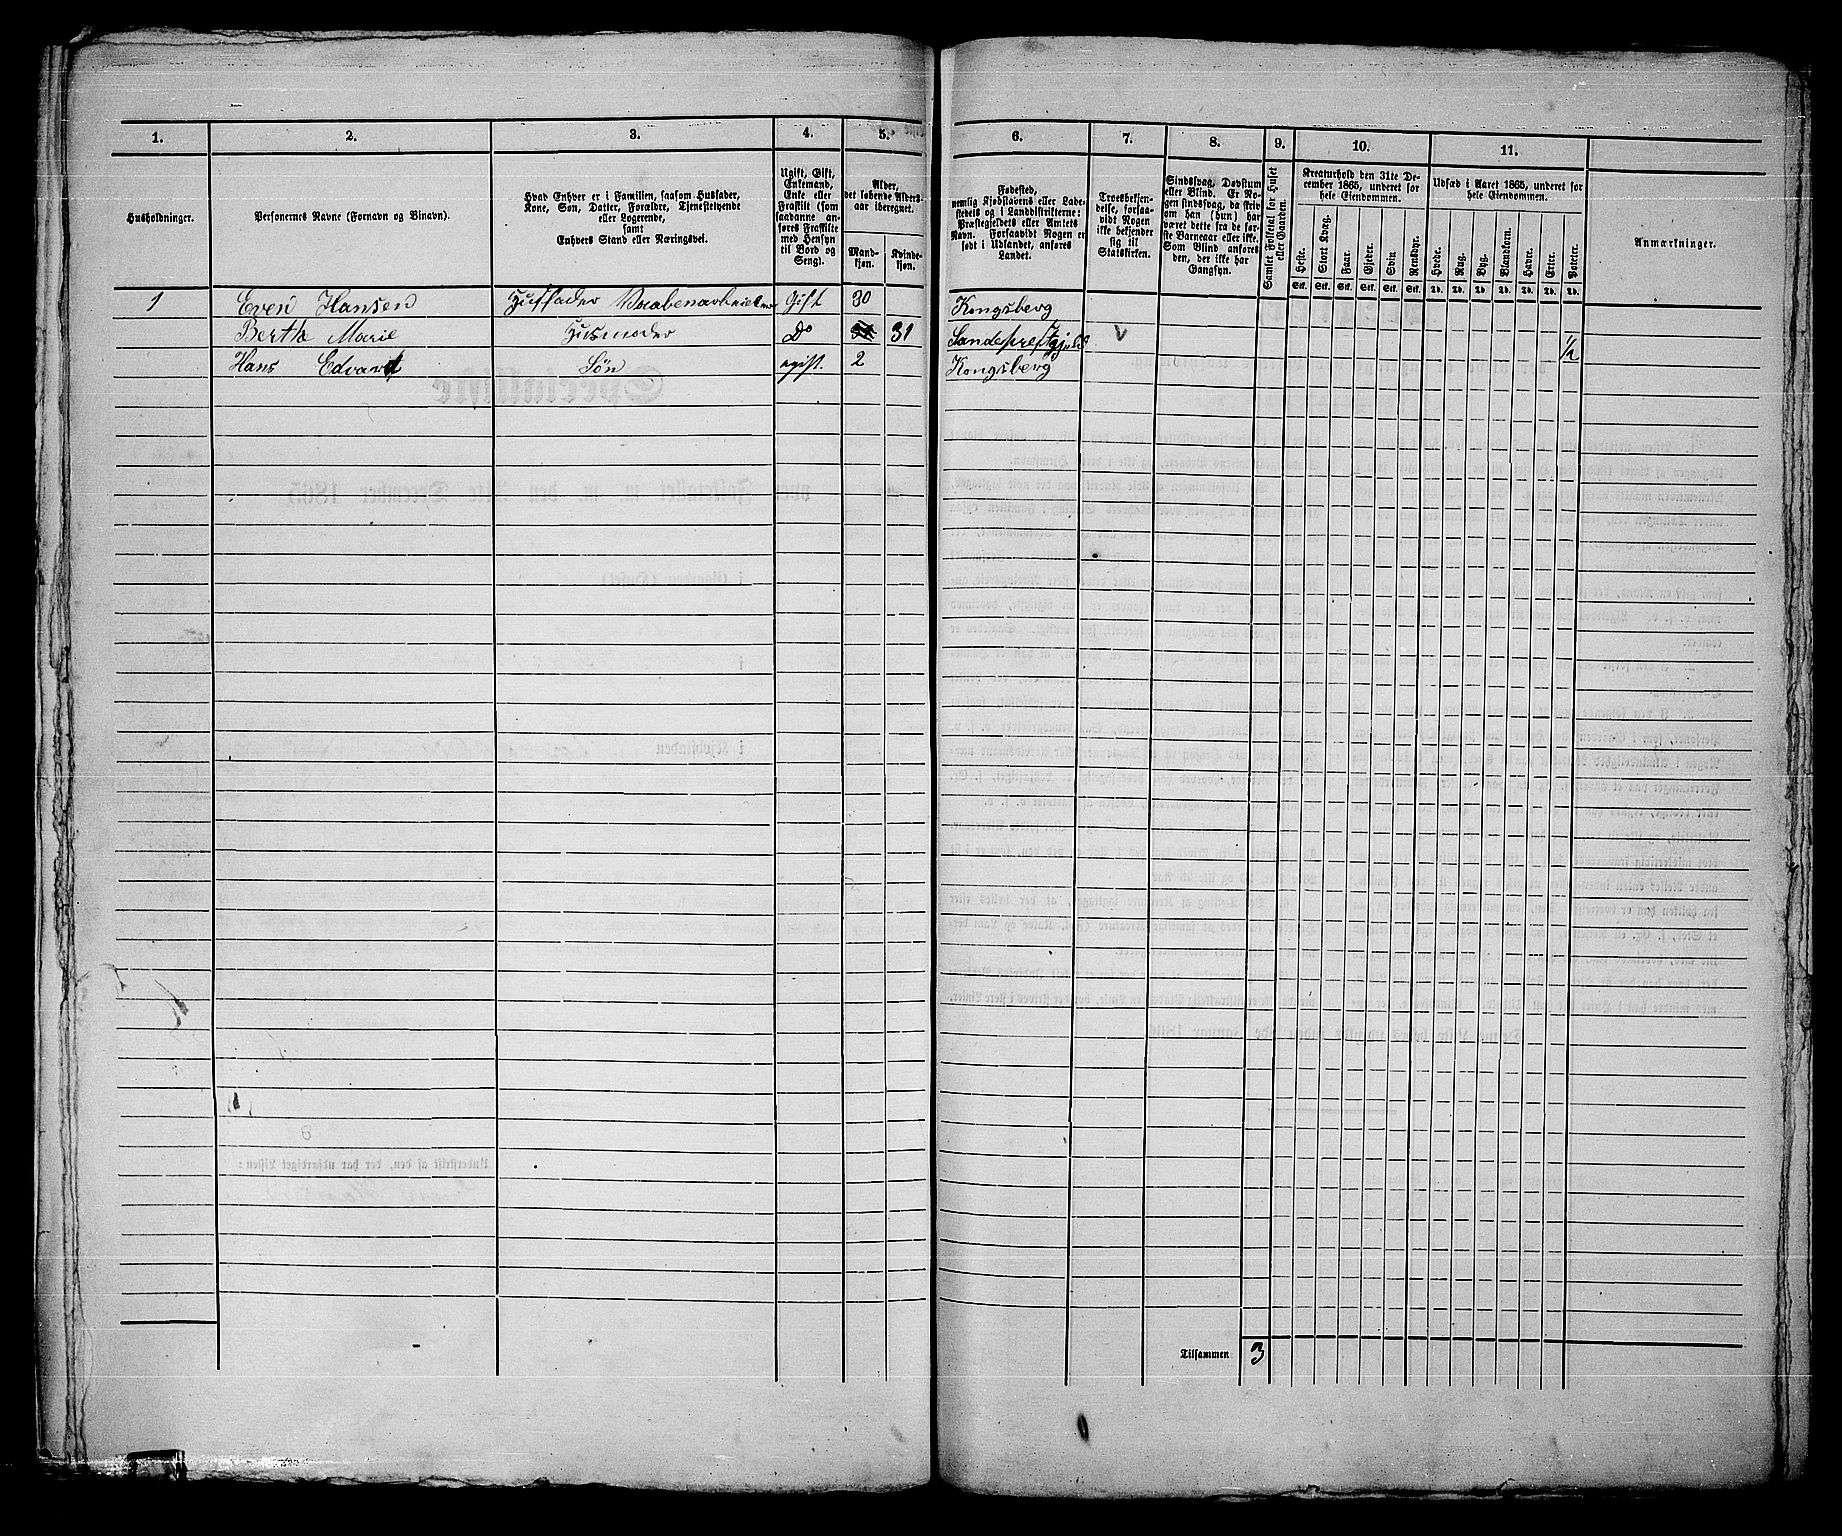 1. 2. 3. 4. 5. 6. 7. 8. 9. 10. 11.
Husholdninger.
Personernes Navne (Fornavn og Binavn).
Hvad Enhver er i Familien, saasom Husfader,
Kone, Søn, Datter, Forældre, Tjenestetyende
eller Logerende,
samt
Enhvers Stand eller Næringsvei.
Ugift, Gift,
Enkemand,
Enke eller
Fraskilt (som
saadanne an-
føres Fraskilte
med Hensyn
til Bord og
Seng).
Alder,
det løbende Alders-
aar iberegnet.
Mand-
kjøn.
Kvinde-
kjøn.
Fødested,
nemlig Kjøbstadens eller Lade-
stedets og i Landdistrikterne:
Præstegjeldets eller Amtets
Navn. Forsaavidt Nogen er
født i Udlandet, anføres
Landet.
Troesbekjen-
delse, forsaa-
vidt Nogen
ikke bekjender
sig til
Statskirken.
Sindssvag, Døvstum
eller Blind. Er No-
gen sindssvag, da skriv
om han (hun) har
været dette fra de før-
ste Barneaar eller ikke.
Som Blind anføres
den, der ikke har
Gangsyn.
Samlet Folketal for Huset
eller Gaarden.
Kreaturhold den 31te De-
cember 1865, underet for
hele Eiendommen.
Heste. Stort Kvæg. Faar. Gjeder. Svin Rensdyr.
Stk. Stk. Stk. Stk. Stk. Stk.
Udsæd i Aaret 1865, underet for
hele Eiendommen.
Hvede. Rug. Byg. Blandkorn. Havre. Erter. Poteter.
Td. Td. Td. Td. Td. Td. Td.
Anmærkninger.
1 Even Hansen Husfader Vaabenarbeider Gift 30 Kongsberg
Berthe Marie Husmoder Do 31 Sandeprestgjeld V 1/2
Hans Edvard Søn ugift. 2 Kongsberg
Tilsammen 3